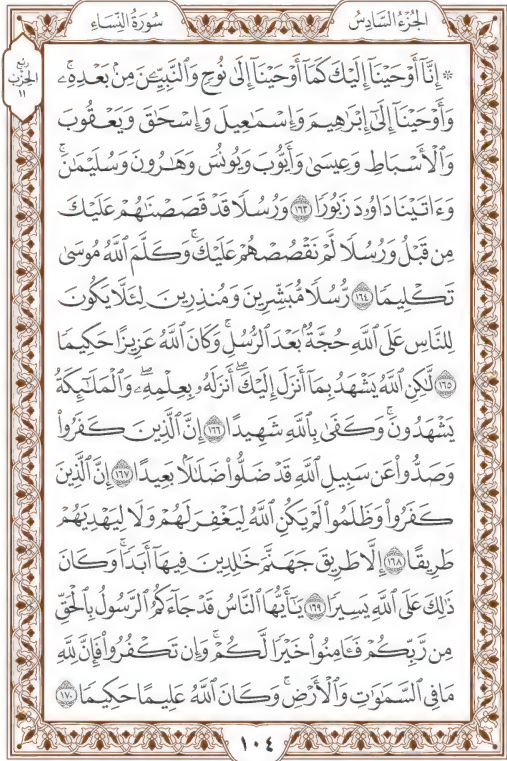 الجُزْءُ السَّادِسُ
سُورَةُ النِّسَاءِ
رُبْع
الحِزْب
١١
۞ إِنَّآ أَوۡحَيۡنَآ إِلَيۡكَ كَمَآ أَوۡحَيۡنَآ إِلَىٰ نُوحٖ وَٱلنَّبِيِّـۧنَ مِنۢ بَعۡدِهِۦۚ
وَأَوۡحَيۡنَآ إِلَىٰٓ إِبۡرَٰهِيمَ وَإِسۡمَٰعِيلَ وَإِسۡحَٰقَ وَيَعۡقُوبَ
وَٱلۡأَسۡبَاطِ وَعِيسَىٰ وَأَيُّوبَ وَيُونُسَ وَهَٰرُونَ وَسُلَيۡمَٰنَۚ
وَءَاتَيۡنَا دَاوُۥدَ زَبُورٗا ١٦٣ وَرُسُلٗا قَدۡ قَصَصۡنَٰهُمۡ عَلَيۡكَ
مِن قَبۡلُ وَرُسُلٗا لَّمۡ نَقۡصُصۡهُمۡ عَلَيۡكَۚ وَكَلَّمَ ٱللَّهُ مُوسَىٰ
تَكۡلِيمٗا ١٦٤ رُّسُلٗا مُّبَشِّرِينَ وَمُنذِرِينَ لِئَلَّا يَكُونَ
لِلنَّاسِ عَلَى ٱللَّهِ حُجَّةُۢ بَعۡدَ ٱلرُّسُلِۚ وَكَانَ ٱللَّهُ عَزِيزًا حَكِيمٗا
١٦٥ لَّٰكِنِ ٱللَّهُ يَشۡهَدُ بِمَآ أَنزَلَ إِلَيۡكَۖ أَنزَلَهُۥ بِعِلۡمِهِۦۖ وَٱلۡمَلَٰٓئِكَةُ
يَشۡهَدُونَۚ وَكَفَىٰ بِٱللَّهِ شَهِيدًا ١٦٦ إِنَّ ٱلَّذِينَ كَفَرُواْ
وَصَدُّواْ عَن سَبِيلِ ٱللَّهِ قَدۡ ضَلُّواْ ضَلَٰلَۢا بَعِيدًا ١٦٧ إِنَّ ٱلَّذِينَ
كَفَرُواْ وَظَلَمُواْ لَمۡ يَكُنِ ٱللَّهُ لِيَغۡفِرَ لَهُمۡ وَلَا لِيَهۡدِيَهُمۡ
طَرِيقًا ١٦٨ إِلَّا طَرِيقَ جَهَنَّمَ خَٰلِدِينَ فِيهَآ أَبَدٗاۚ وَكَانَ
ذَٰلِكَ عَلَى ٱللَّهِ يَسِيرٗا ١٦٩ يَٰٓأَيُّهَا ٱلنَّاسُ قَدۡ جَآءَكُمُ ٱلرَّسُولُ بِٱلۡحَقِّ
مِن رَّبِّكُمۡ فَـَٔامِنُواْ خَيۡرٗا لَّكُمۡۚ وَإِن تَكۡفُرُواْ فَإِنَّ لِلَّهِ
مَا فِي ٱلسَّمَٰوَٰتِ وَٱلۡأَرۡضِۚ وَكَانَ ٱللَّهُ عَلِيمًا حَكِيمٗا ١٧٠
١٠٤